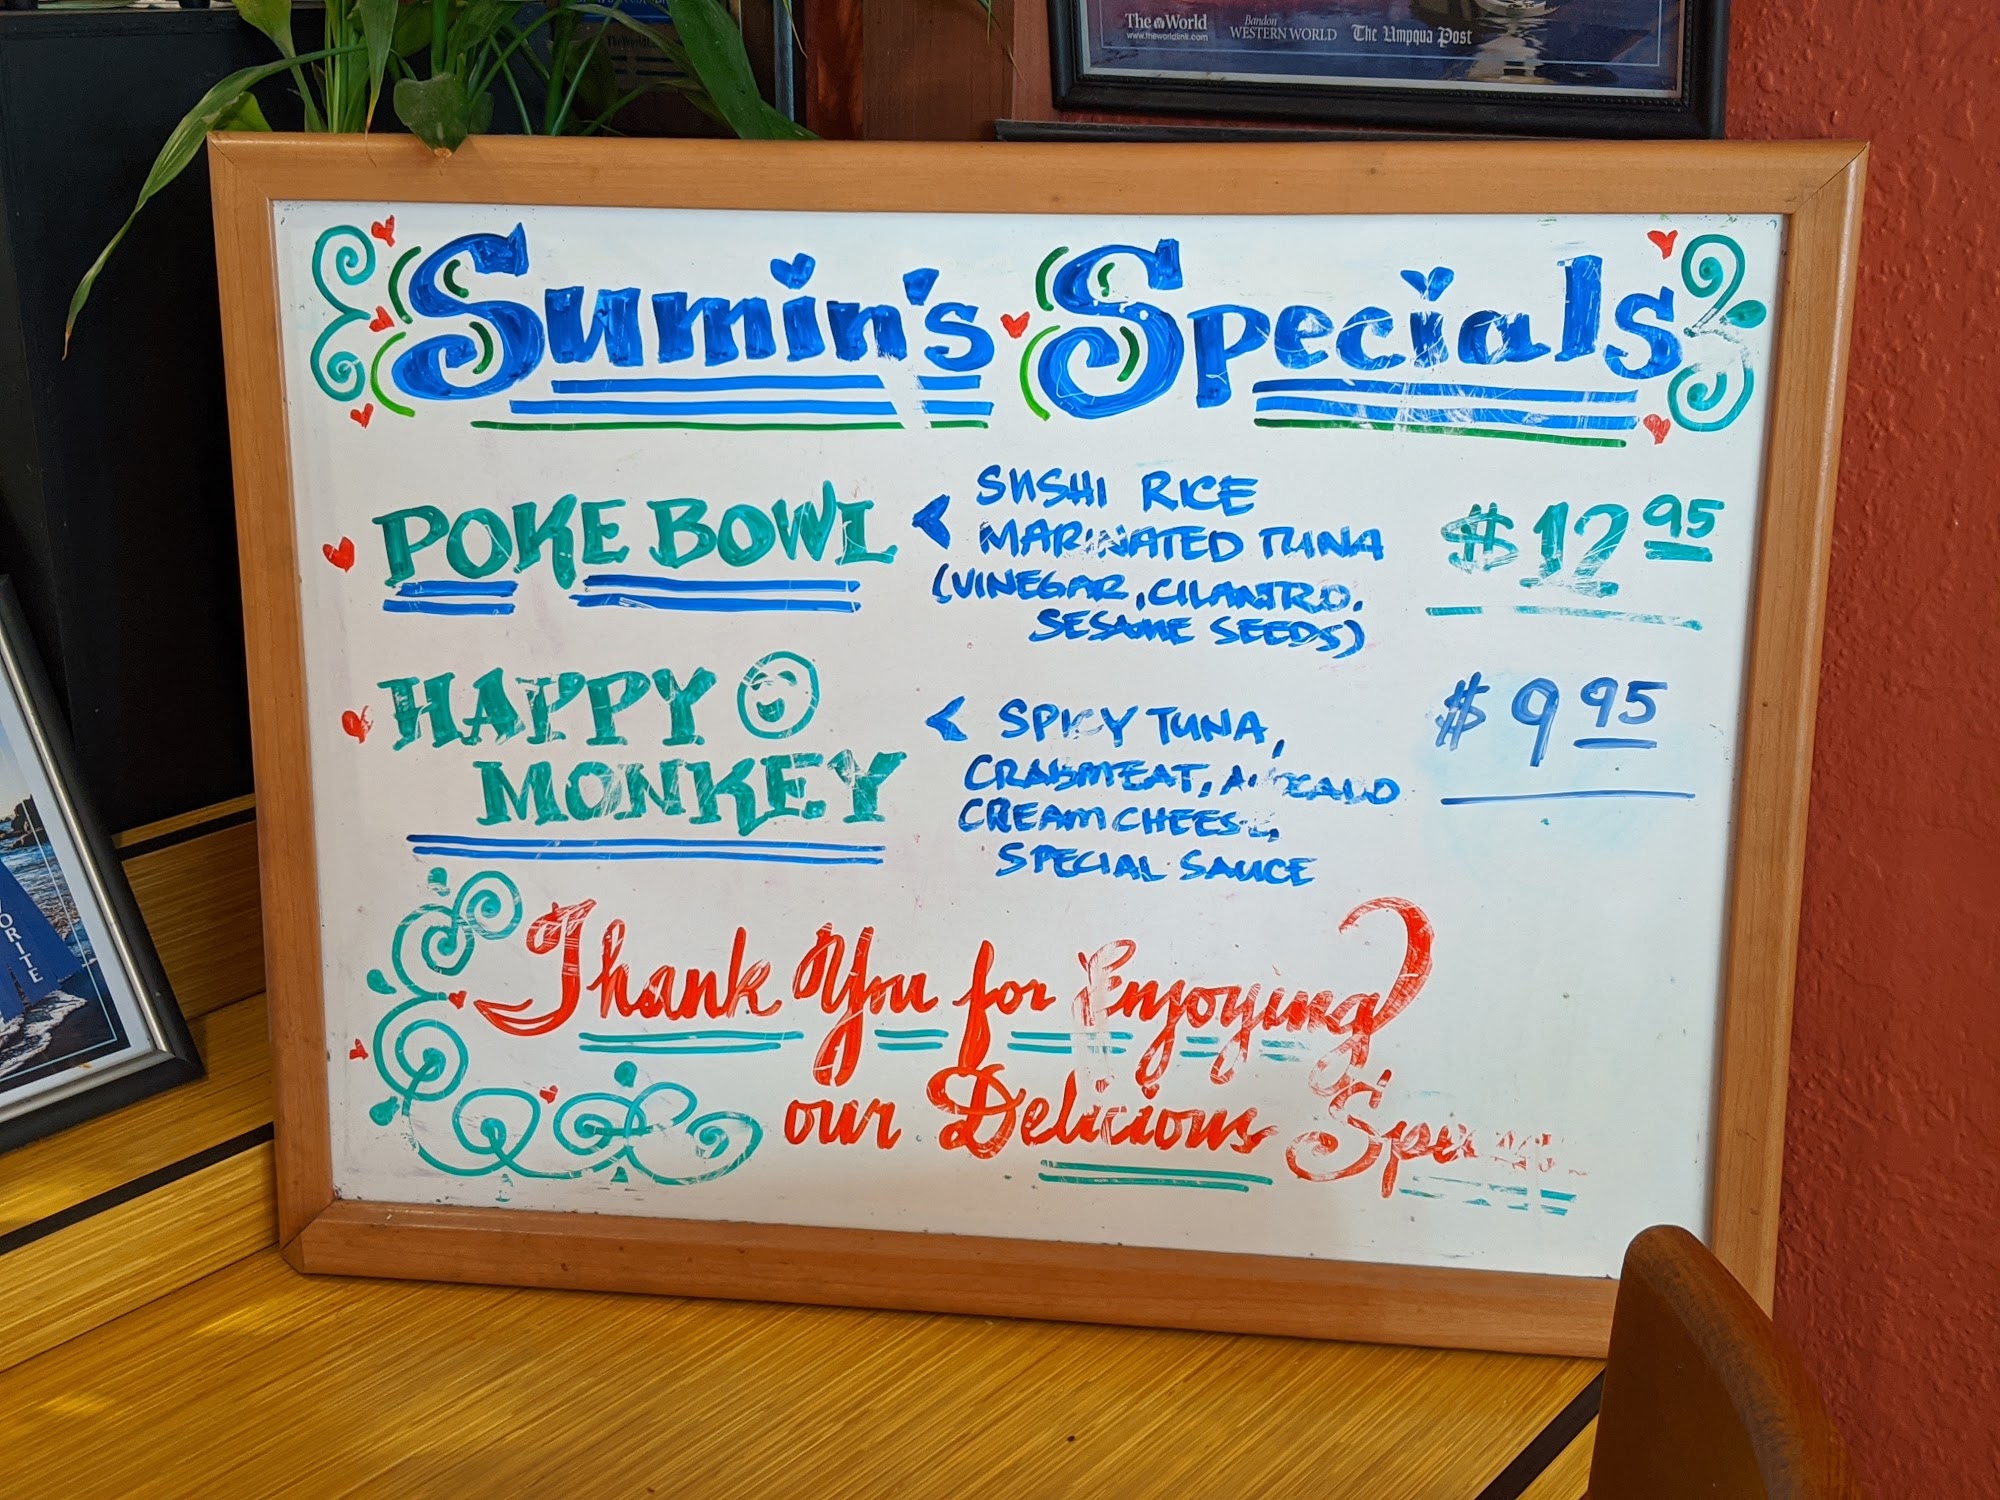 The World
www.theworldlink.com
Bandon
WESTERN WORLD
The Umpqua Post
Sumin's Specials
POKE BOWL
< SUSHI RICE
MARINATED TUNA
(VINEGAR, CILANTRO,
SESAME SEEDS)
$12.95
HAPPY
MONKEY
< SPICY TUNA,
CRABMEAT, AVOCADO
CREAM CHEESE,
SPECIAL SAUCE
$9.95
Thank You for Enjoying
our Delicious
ORITE